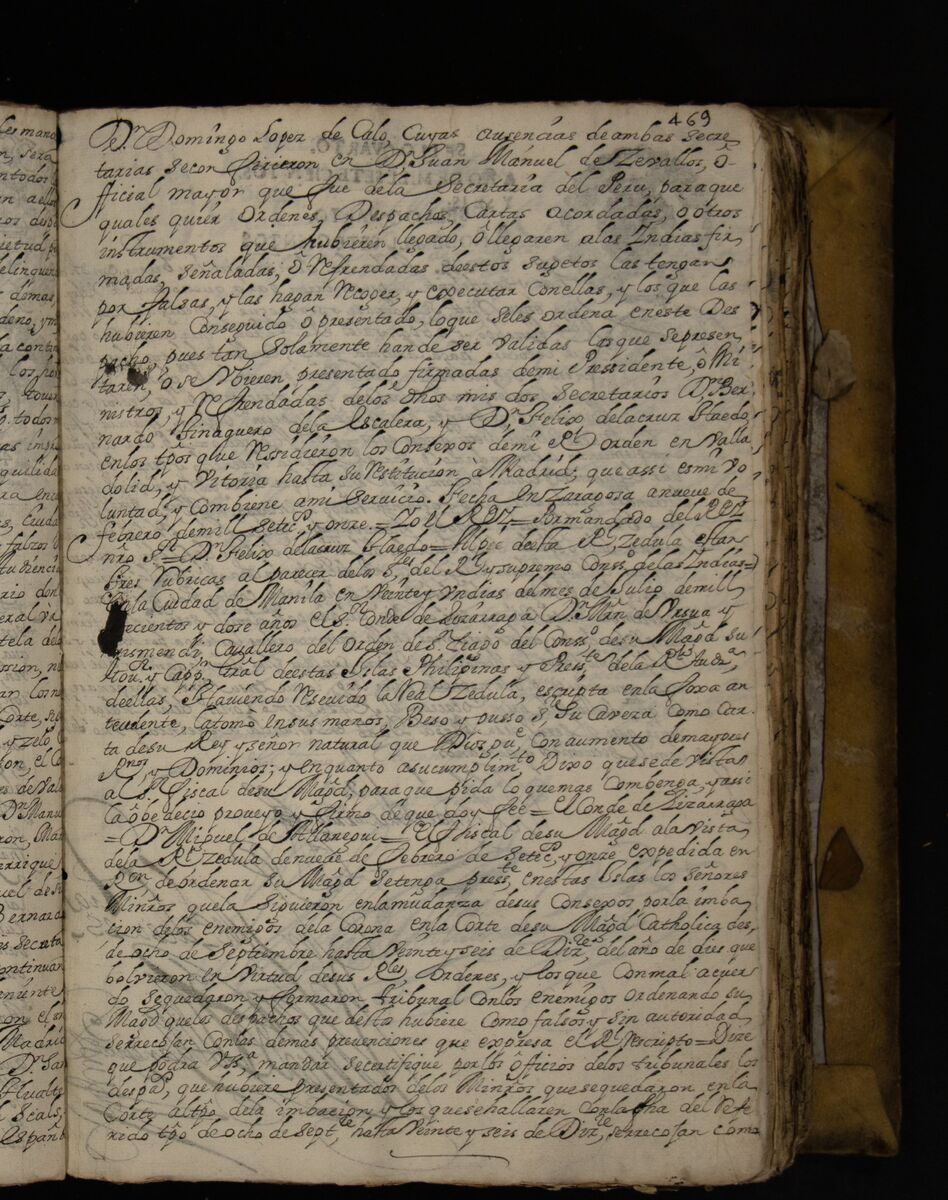 469
Dn Domingo Lopez de Calo, Cuyas ausencias de ambas secre
tarias se con firieron en Dn Juan Manuel de Zevallos, ô
fficial mayor que fue dela Secretaria del Peru, para que
quales quier Ordenes, Despachos, Cartas acordadas, ô otros
instrumentos que hubieren llegado, ô llegaren alas Indias fir
madas, señaladas, ô Refrendadas deestos sugetos las tengan
por falsas, y las hagan Recoger, y executar Conellas, y los que las
hubieren Conseguido ô presentado, loque seles ordena eneste Des
pacho, pues tan solamente hande ser validas las que sepresen
taren, ô se Vbieren presentado firmadas demi Pressidente, ô Mi
nistros, y Refrendadas delos dhos mis dos Secretarios Dn Ber
nardo Tinaguero dela Escalera, y Dn Felix delacruz Haedo,
enlos tpos que Ressidieron los Consexos demi Rl Orden en Valla
dolid, y Vitoria hasta su restitucion à Madrid, que assi es mi vo
luntad, y Combiene ami Servicio. Fecha En Zaragosa anueve de
febrero demill setecs y onze. = Yo El Rey = Pormandado del Rey
nro Sr = Dn Felix delacruz Haedo = Alpie deesta Rl Zedula estan
tres Rubricas al parecer delos Ses del Rl y supremo Conso delas Indias =
Enla Ciudad de Manila en Veinte y Vndias del mes de Julio demill
setecientos y dose años el Sr Conde de Lizarraga Dn Mrn de Vrsua y
Arismendi, Cavallero del Orden de S. Tiago del Conso desu Magd su
Gou.or y Capn Gral deestas Islas Philipinas y Presste dela Rl Auda
deellas, Haviendo Resevido la Real Zedula, escripta enla foxa an
tecedente, latomo ensus manos, Beso y pusso S. Su Caveza como Car
ta desu Rey y señor natural que Dios gue con aumento demayores
Rnos y Dominios; y enquanto asucumplimto Dixo quesede vista
al Sr Fiscal desu Magd, para que pida lo quemas Combenga, y assi
la ôbedecio proveyo y firmo deque doy fee = El Conde de Lizarraga
= Dn Miguel de = El Fiscal desu Magd ala vista
dela Rl Zedula de nueve de Febrero de setecs y onze expedida en
Rçon deordenar su Magd setenga presste enestas Islas los señores
Minros quela siguieron enlamudanza desus Consexos porla imba
cion delos enemigos dela Corona enla Corte desu Magd Catholica des
de ocho de Septiembre hasta Veinte y seis de Dizre del año de dies que
bolvieron en Virtud desus Rles Ordenes, y los que Conmal acuer
do sequedaron y formaron tribunal Conlos enemigos ordenando su
Magd quelos despachos que desto hubiere Como falsos y sin autoridad
serrecojan Conlas demas prevenciones que expresa el Rl Rescripto = Dize
que podra VSa mandar secertifique porlos Officios delos tribunales los
despos que hubiere presentados delos Minros quesequedaron enla
Corte altpo dela imbacion y los quesehallaren Conla fha del Refe
rido tpo de ocho de Septre hasta Veinte y seis de Dizre serrecojan como